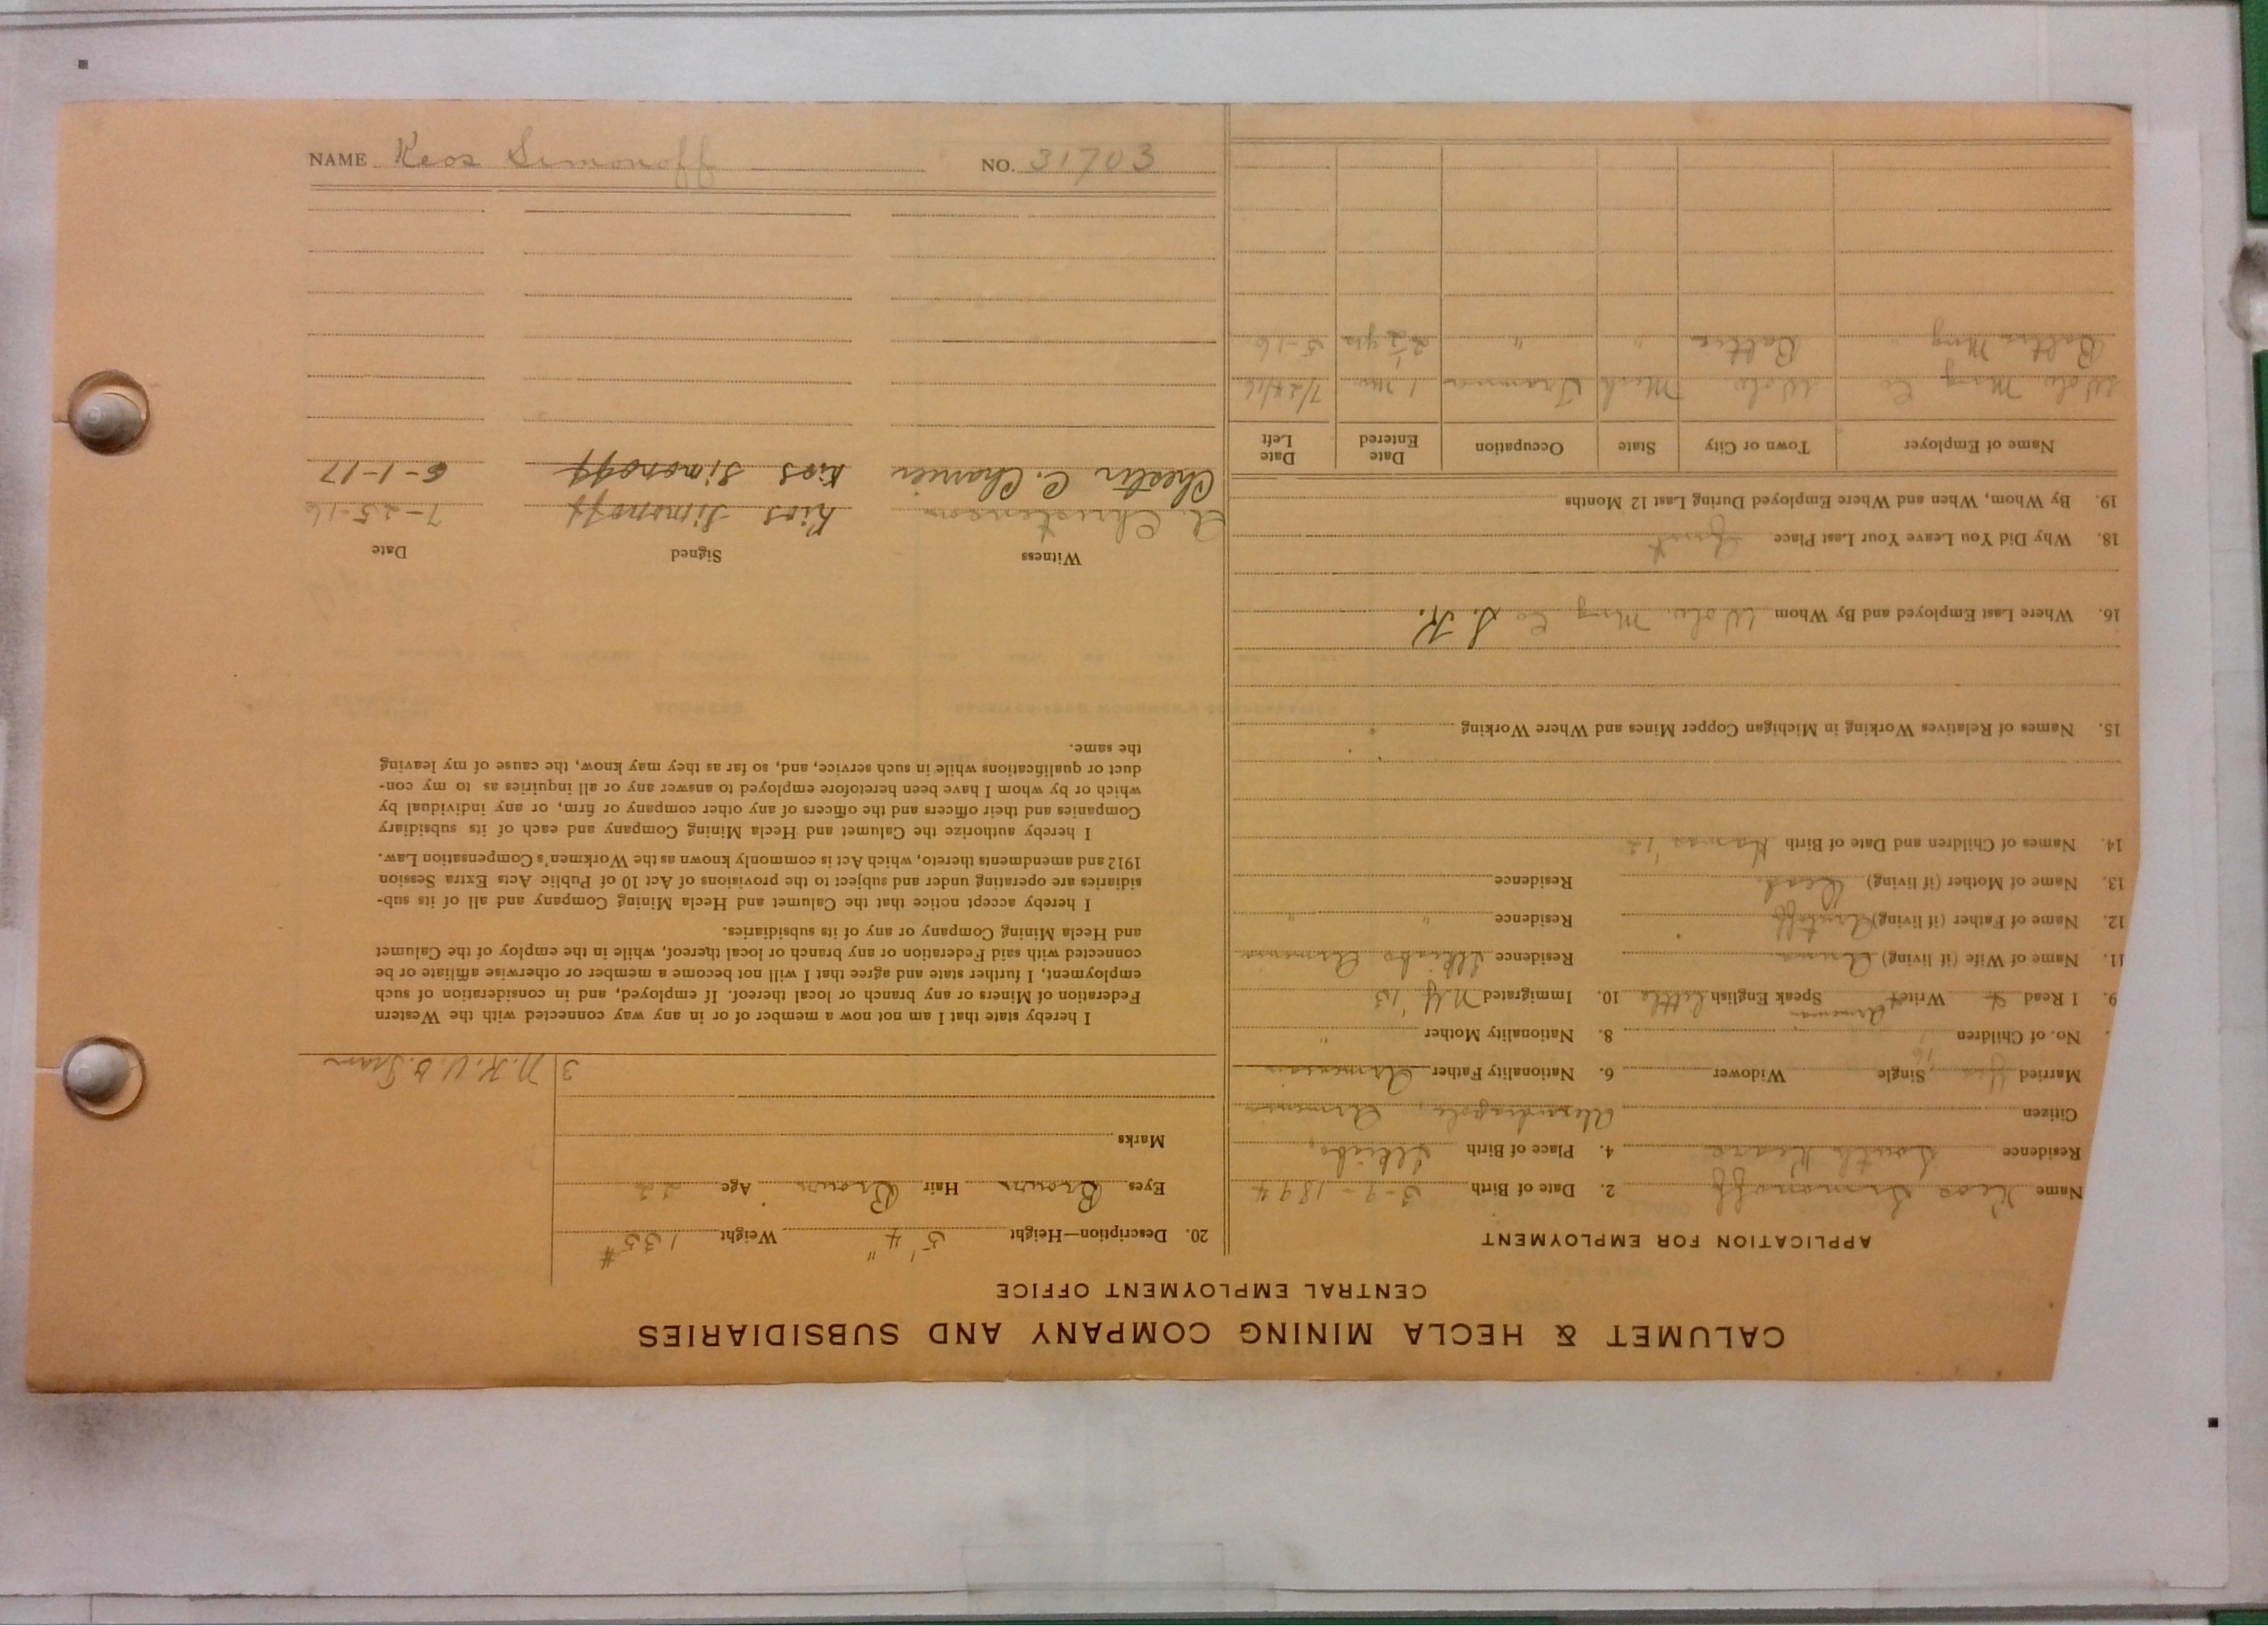 CALUMET & HECLA MINING COMPANY AND SUBSIDIARIES
CENTRAL EMPLOYMENT OFFICE
APPLICATION FOR EMPLOYMENT
Name Keos Simonoff 2. Date of Birth 3-9-1894
Residence South Kearsarge 4. Place of Birth
Citizen Alexandrapole,
Married Yes Single Widower 6. Nationality Father
No. of Children 8. Nationality Mother "
9. I Read Write Speak English little 10. Immigrated N.Y. '13
11. Name of Wife (if living) Residence
12. Name of Father (if living) Residence " "
13. Name of Mother (if living) Dead Residence
14. Names of Children and Date of Birth
15. Names of Relatives Working in Michigan Copper Mines and Where Working
16. Where Last Employed and By Whom Wolv. Mng Co S. K.
18. Why Did You Leave Your Last Place Quit
19. By Whom, When and Where Employed During Last 12 Months
Name of Employer Town or City State Occupation Date Entered Date Left
Wolv Mng Co Wolv Mich Trammer 1 mo 7/24/16
Baltic Mng " Baltic " " 2½ yrs 5-16
20. Description—Height 5' 4" Weight 135 #
Eyes Brown Hair Brown Age 22
Marks
3 N. K. U. G. Tram
I hereby state that I am not now a member of or in any way connected with the Western
Federation of Miners or any branch or local thereof. If employed, and in consideration of such
employment, I further state and agree that I will not become a member or otherwise affiliate or be
connected with said Federation or any branch or local thereof, while in the employ of the Calumet
and Hecla Mining Company or any of its subsidiaries.
I hereby accept notice that the Calumet and Hecla Mining Company and all of its sub-
sidiaries are operating under and subject to the provisions of Act 10 of Public Acts Extra Session
1912 and amendments thereto, which Act is commonly known as the Workmen's Compensation Law.
I hereby authorize the Calumet and Hecla Mining Company and each of its subsidiary
Companies and their officers and the officers of any other company or firm, or any individual by
which or by whom I have been heretofore employed to answer any or all inquiries as to my con-
duct or qualifications while in such service, and, so far as they may know, the cause of my leaving
the same.
Witness Signed Date
A. Christenson Kios Simonoff 7-25-16
Chester C. Kios Simonoff 6-1-17
NAME Keos Simonoff NO. 31703